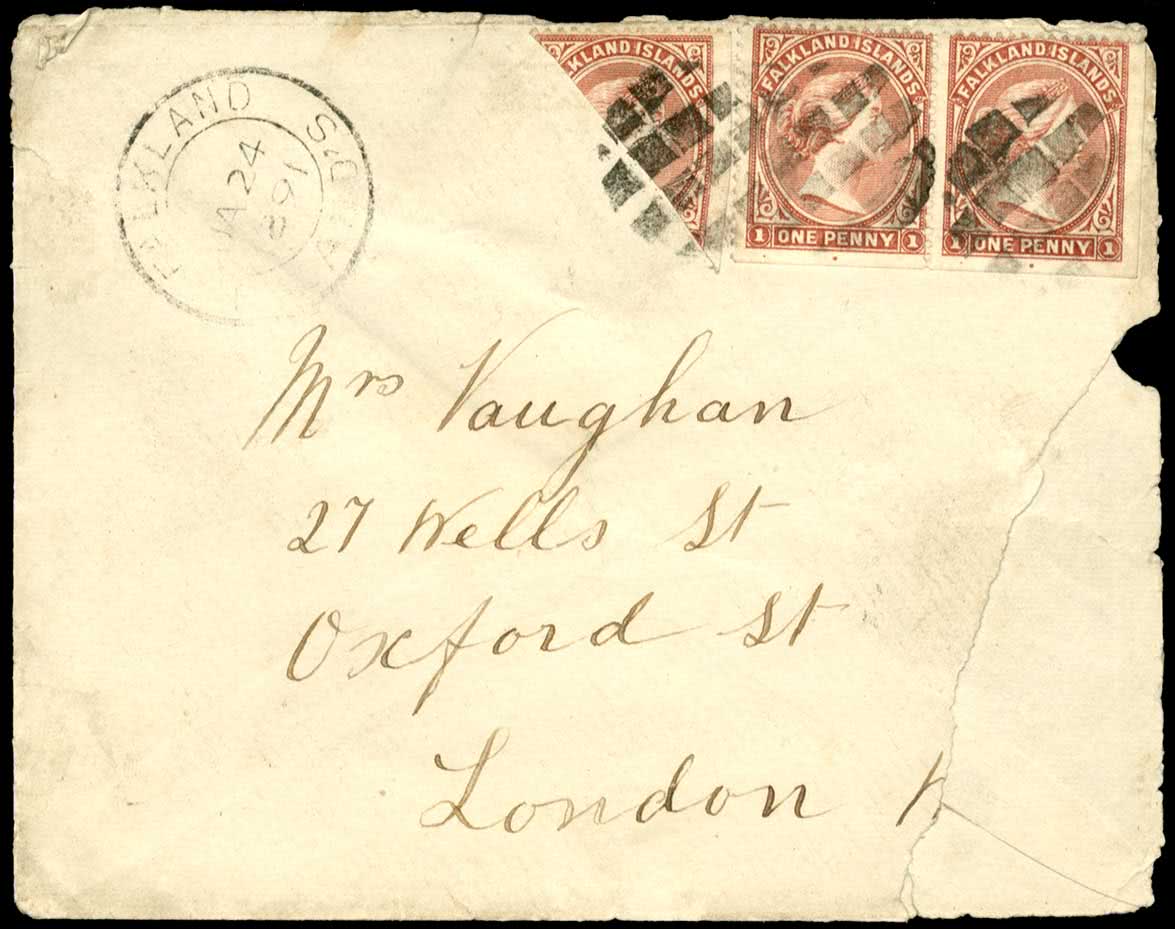 FALKLAND ISLANDS
FALKLAND ISLANDS
FALKLAND ISLANDS
1 ONE PENNY 1
1 ONE PENNY 1
FALKLAND
JA 24
91
Mrs Vaughan
27 Wells St
Oxford St
London